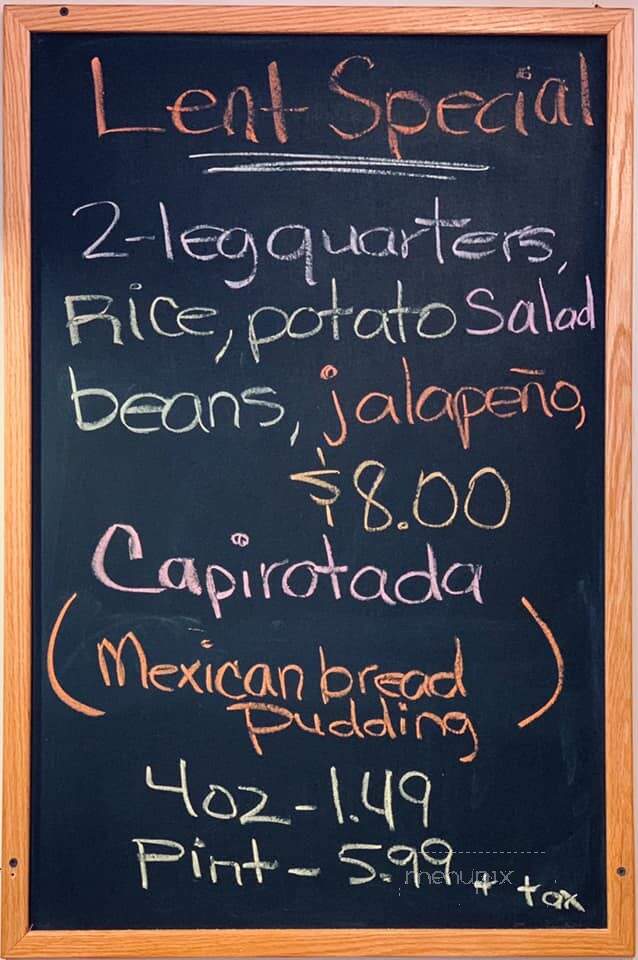 Lent Special
2-leg quarters,
Rice, potato Salad
beans, jalapeño,
$8.00
Capirotada
(Mexican bread
pudding)
4oz - 1.49
Pint - 5.99
menupix
+ tax